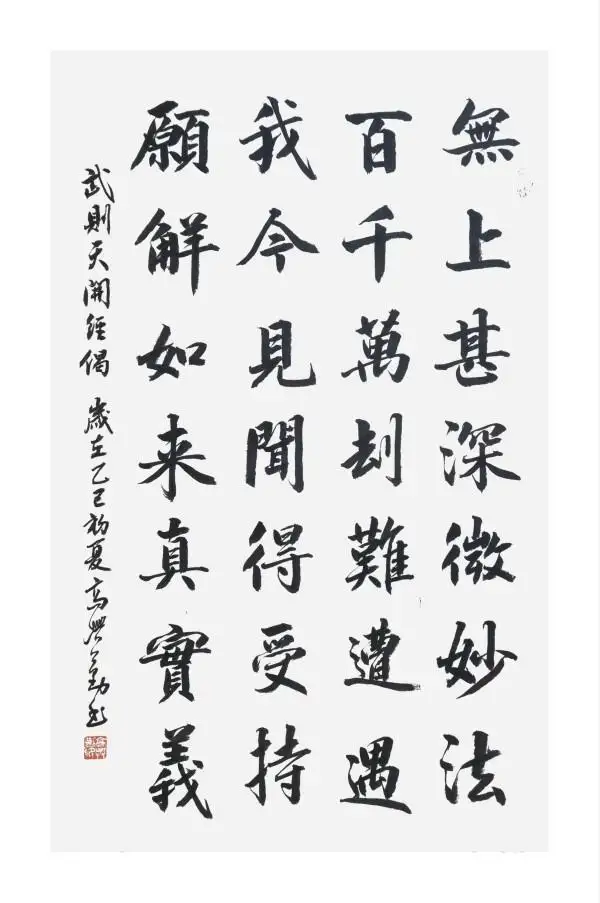 無上甚深微妙法
百千萬刦難遭遇
我今見聞得受持
願解如来真實義
武則天開経偈 歲在乙巳初夏 高